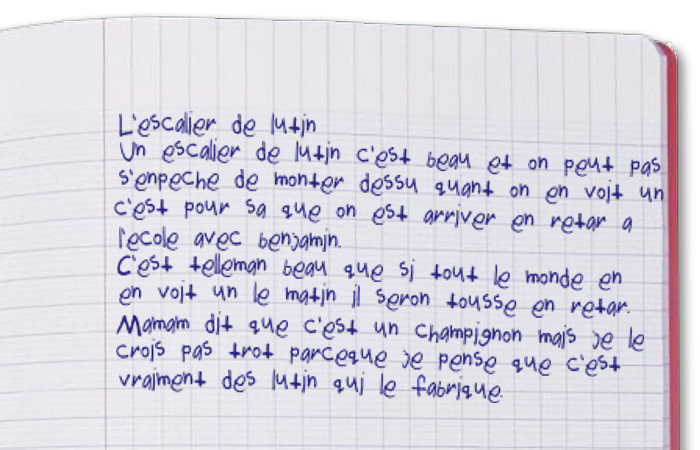 L'escalier de lutin
Un escalier de lutin c'est beau et on peut pas
s'enpeche de monter dessu quant on en voit un
c'est pour sa que on est arriver en retar a
l'ecole avec benjamin.
C'est telleman beau que si tout le monde en
en voit un le matin il seron tousse en retar.
Mamam dit que c'est un champignon mais je le
crois pas trot parceque je pense que c'est
vraiment des lutin qui le fabrique.